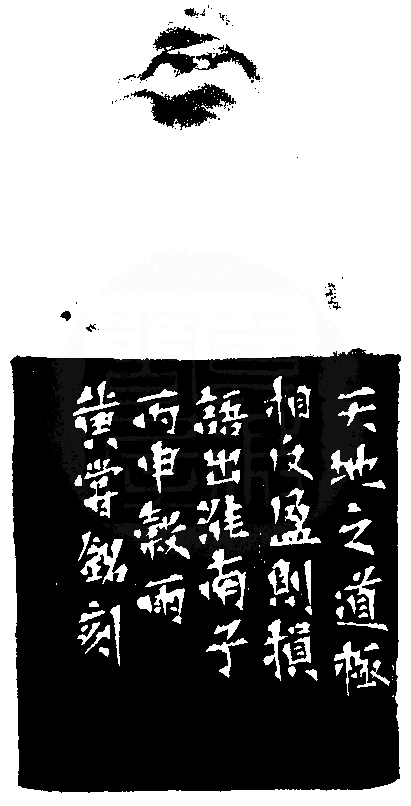 天地之道極
相反盈則損
語出淮南子
丙申穀雨
黃嘗銘刻